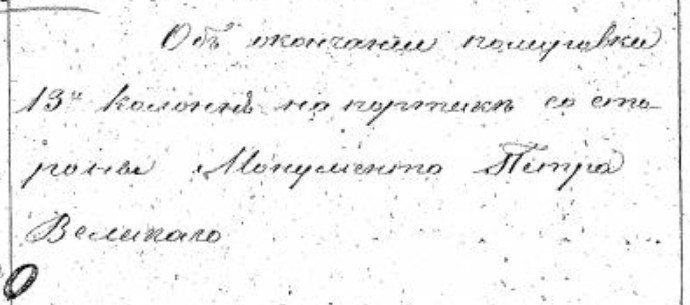 Объ окончаніи полировки
13ͭ колоннъ на портикѣ со сто-
роны Монумента Петра
Великаго